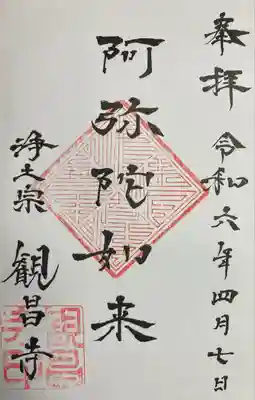 奉拝
令和六年四月七日
阿弥陀如来
浄土宗
観昌寺